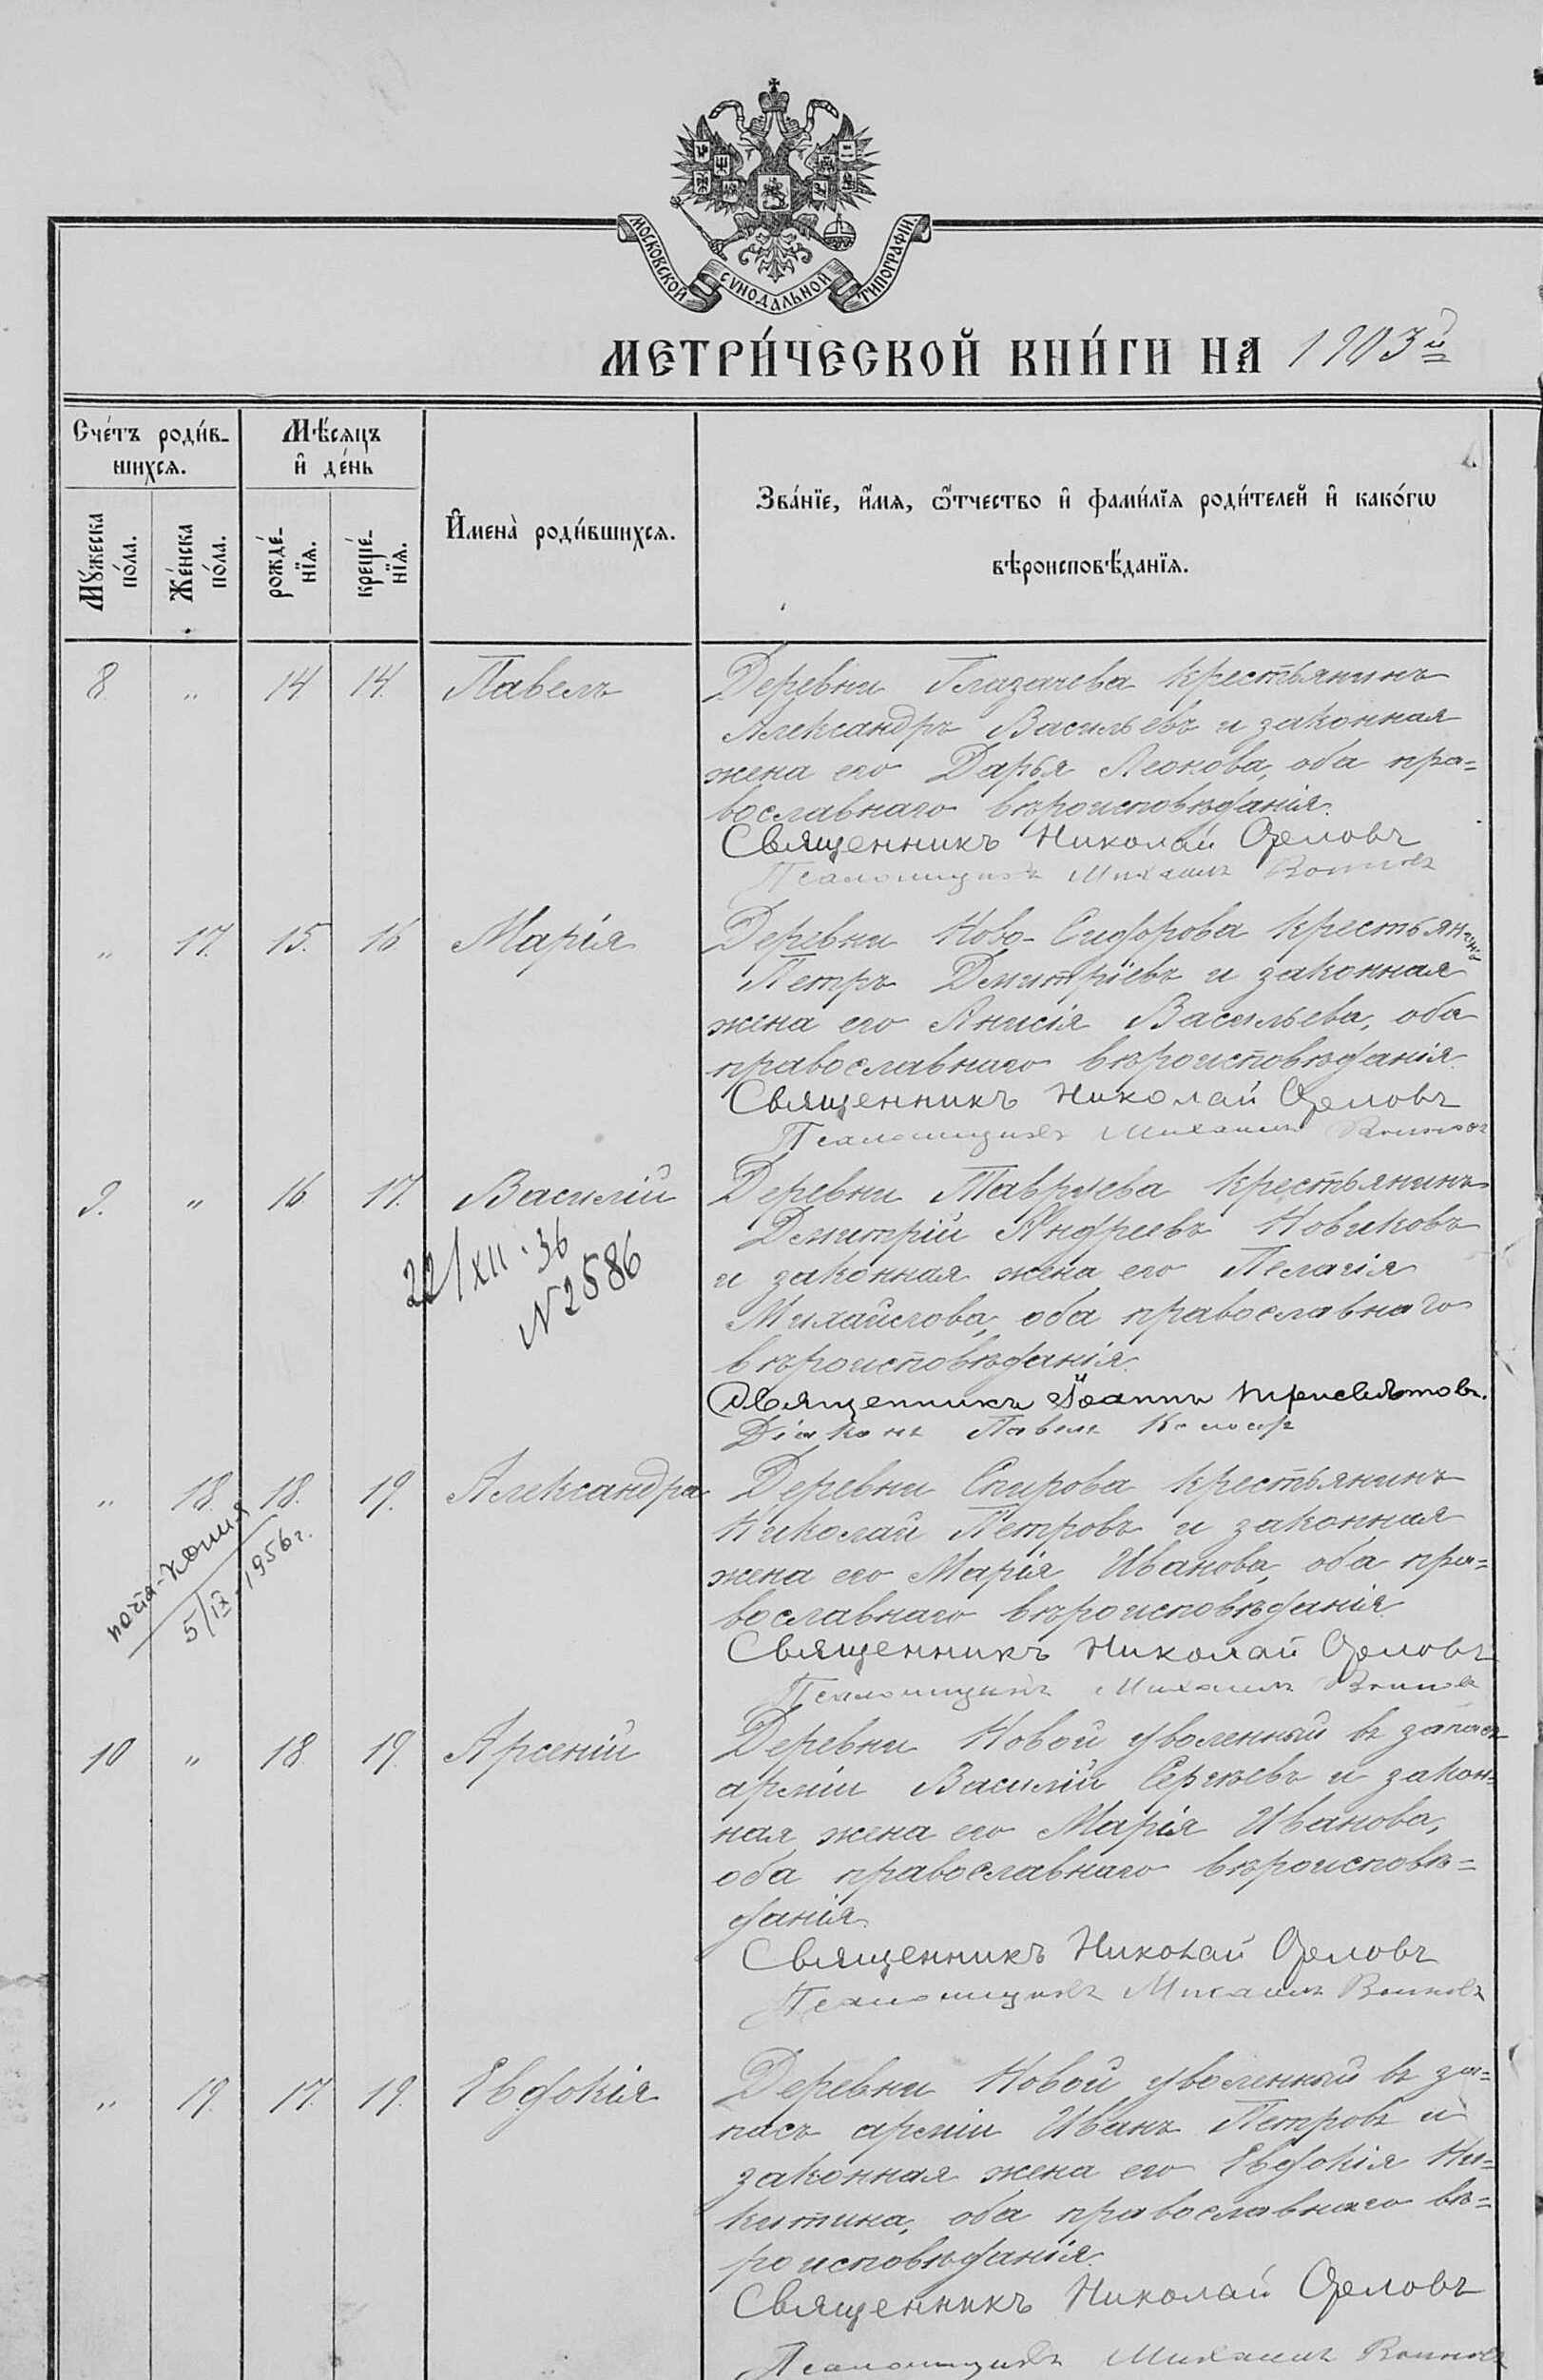 МОСКОВСКОЙ СѴНОДАЛЬНОЙ ТИПОГРАФІИ.
МЕТРИ́ЧЕСКОЙ КНИ́ГИ НА 1903й
Сче́тъ роди́в-
шихсѧ.
Мѣ́сѧцъ
и҆ де́нь
И҆мена̀ роди́вшихсѧ.
Зва́нїе, и҆́мѧ, ѻ҆́тчество и҆ фами́лїѧ роди́телей и҆ како́гѡ
вѣроисповѣ́данїѧ.
Мꙋ́жеска
по́ла.
Же́нска
по́ла.
рожде́-
нїѧ.
креще́-
нїѧ.
8 " 14 14. Павелъ Деревни Глазачева крестьянинъ
Александръ Васильевъ и законная
жена его Дарья Леонова, оба пра=
вославнаго вѣроисповѣданія.
Священникъ Николай Орловъ
Псаломщикъ Михаилъ
" 17. 15. 16 Марія Деревни Ново-Сидорова крестьянинъ
Петръ Дмитріевъ и законная
жена его Анисія Васильева, оба
православнаго вѣроисповѣданія.
Священникъ Николай Орловъ
Псаломщикъ Михаилъ
9. " 16 17. Василій Деревни Тавруева крестьянинъ
Дмитрій Андреевъ Новиковъ
и законная жена его Пелагія
Михайлова, оба православнаго
вѣроисповѣданія.
22/XII·36
N2586
Священникъ Іоаннъ Трисвятовъ.
Діаконъ Павелъ
" 18. 18. 19. Александра Деревни Спирова крестьянинъ
Николай Петровъ и законная
жена его Марія Иванова, оба пра=
вославнаго вѣроисповѣданія
копия
5/IX-1956г.
Священникъ Николай Орловъ
Псаломщикъ Михаилъ
10 " 18 19. Арсеній Деревни Новой уволенный въ запасъ
арміи Василій Сергѣевъ и закон=
ная жена его Марія Иванова,
оба православнаго вѣроисповѣ=
данія.
Священникъ Николай Орловъ
Псаломщикъ Михаилъ
" 19. 17. 19. Евдокія Деревни Новой уволенный въ за=
пасъ арміи Иванъ Петровъ и
законная жена его Евдокія Ни=
китина, оба православнаго вѣ=
роисповѣданія.
Священникъ Николай Орловъ
Псаломщикъ Михаилъ